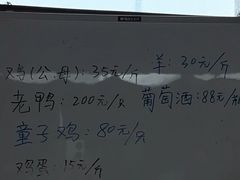 鸡(公.母):35元/斤 羊:30元/斤
老鸭:200元/只 葡萄酒:88元/瓶
童子鸡:80元/只
鸡蛋:15元/斤